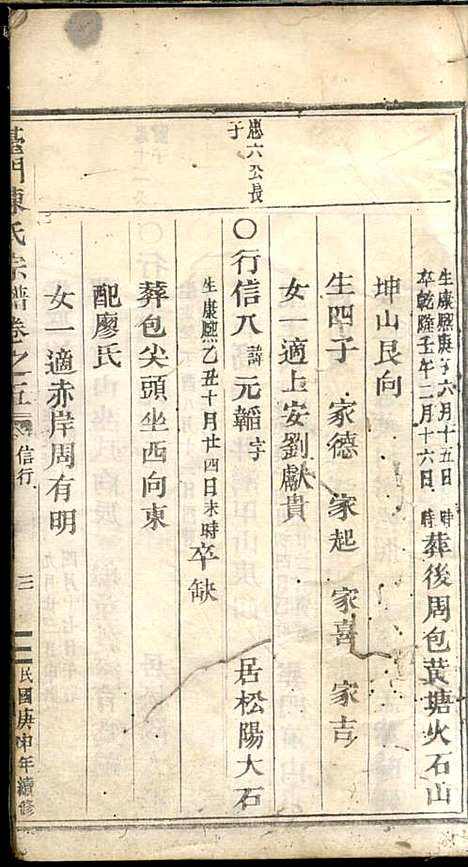 生康熙庚子六月十五日　時
卒乾隆壬午二月十六日　時
葬後周包黃塘火石山
坤山艮向
生四子　家德　家起　家喜　家吉
女一適上安劉獻貴
思六公長
子
〇行信八諱元韜字　　居松陽大石
生康熙乙丑十月廿四日未時卒缺
葬包尖頭坐西向東
配廖氏
女一適赤岸周有明
陳氏宗譜卷之五　信行　三　民國庚申年續修